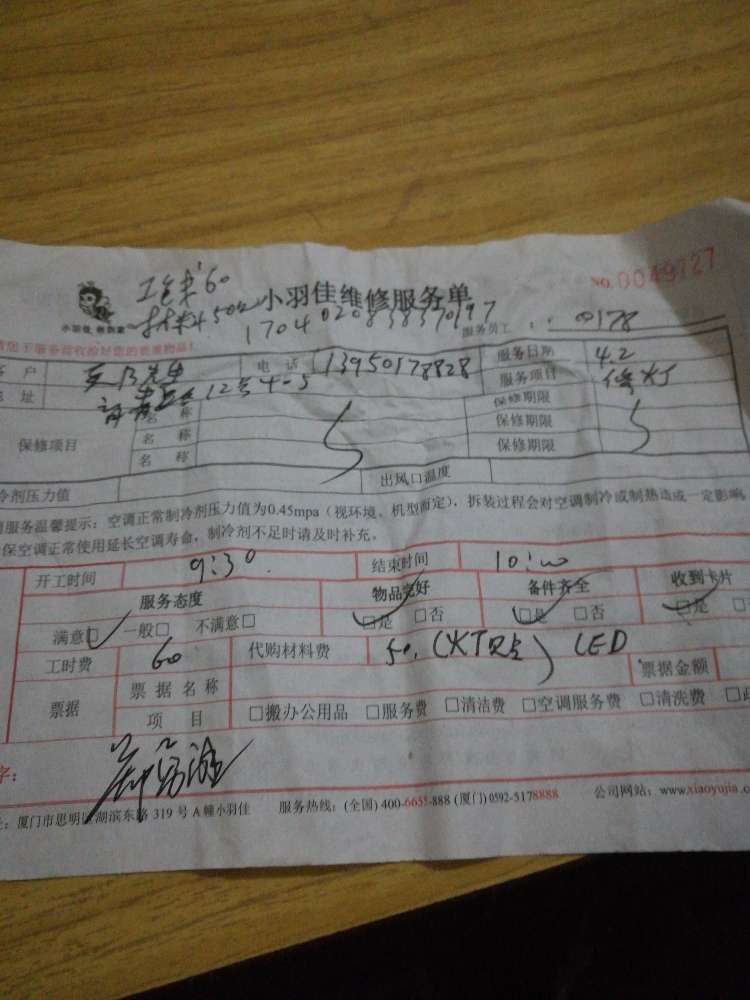 NO.0049727
工时60
小羽佳维修服务单
材料50
17040208383770197
小羽佳 帮到家
服务员工: 0178
户
先生
电 话
13950178828
服务日期
4.2
址
12号4-5
服务项目
修灯
保修项目
名 称
保修期限
名 称
保修期限
名 称
保修期限
冷剂压力值
出风口温度
服务温馨提示:空调正常制冷剂压力值为0.45mpa(视环境、机型而定),拆装过程会对空调制冷或制热造成一定影响
保空调正常使用延长空调寿命,制冷剂不足时请及时补充。
开工时间
9:30
结束时间
10:00
服务态度
物品完好
备件齐全
收到卡片
满意□ 一般□ 不满意□
□是 □否
□是 □否
□是 □
工时费
60
代购材料费
50.
LED
票据金额
票据
票 据 名 称
项 目
□搬办公用品 □服务费 □清洁费 □空调服务费 □清洗费 □
字:
:厦门市思明区湖滨东路 319 号 A 幢小羽佳 服务热线:(全国) 400-6655-888 (厦门) 0592-5178888 公司网站:www.xiaoyujia.c